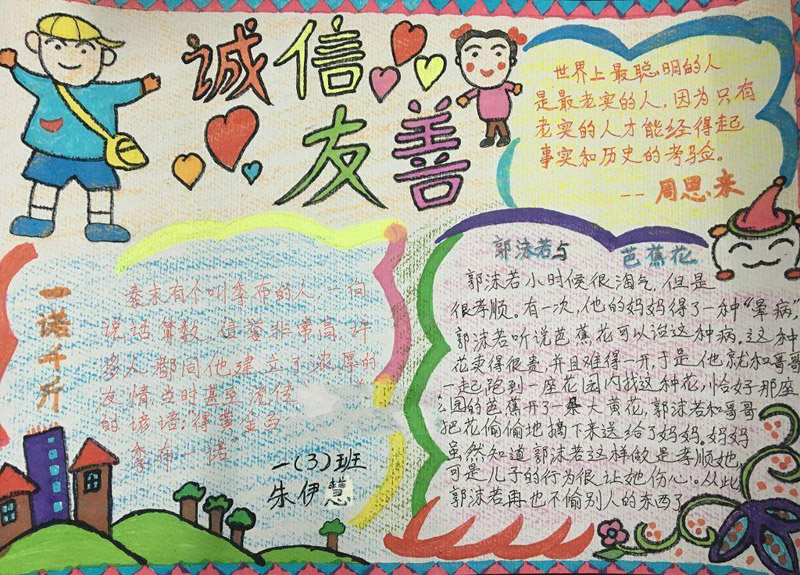 诚信
友善
世界上最聪明的人
是最老实的人，因为只有
老实的人才能经得起
事实和历史的考验。
--周恩来
一诺千斤
秦末有个叫季布的人，一向
说话算数，信誉非常高，许
多人都同他建立了浓厚的
友情当时甚至流传
的谚语：得黄金百
季布一诺"
一(3)班
朱伊慧
郭沫若与 芭蕉花
郭沫若小时侯很淘气，但是
很孝顺。有一次，他的妈妈得了一种"晕病，"
郭沫若听说芭蕉花可以治这种病。这种
花卖得很贵，并且难得一开，于是，他就和哥哥
一起跑到一座花园内找这种花，恰好那座
公园的芭蕉开了一朵大黄花，郭沫若和哥哥
把花偷偷地摘下来送给了妈妈。妈妈
虽然知道郭沫若这样做是孝顺她，
可是儿子的行为很让她伤心。从此
郭沫若再也不偷别人的东西了